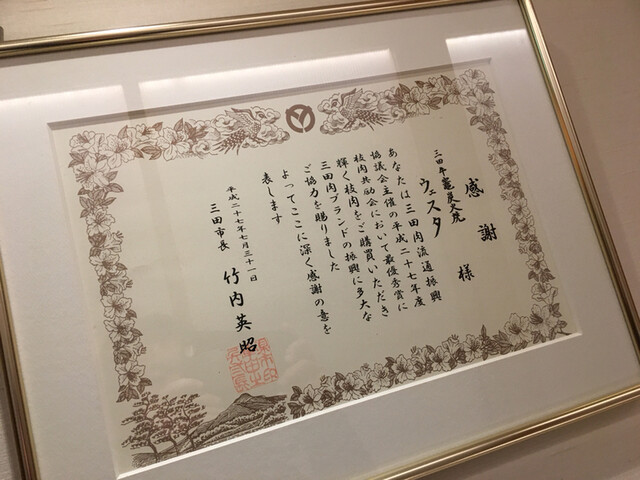 感謝
三田牛炭火焼
ウェスタ様
あなたは三田肉流通振興
協議会主催の平成二十七年度
枝肉共励会において最優秀賞に
輝く枝肉をご購買いただき
三田肉ブランドの振興に多大な
ご協力を賜りました
よってここに深く感謝の意を
表します
平成二十七年七月三十一日
三田市長 竹内英昭